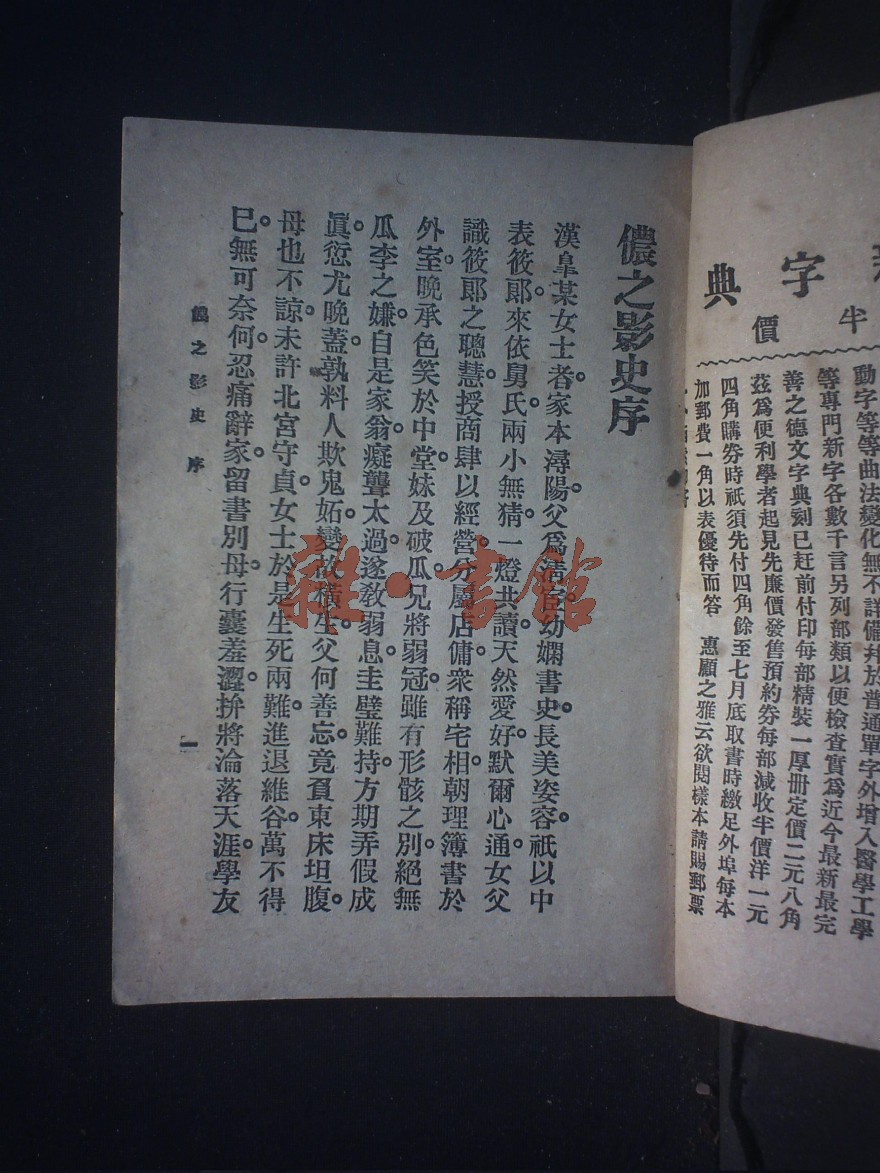 典字
價半
動字等等曲法變化無不詳備幷於普通單字外增入醫學工學
等專門新字各數千言另列部類以便檢查實爲近今最新最完
善之德文字典刻已赶前付印每部精裝一厚冊定價二元八角
茲爲便利學者起見先廉價發售預約券每部減收半價洋一元
四角購券時祇須先付四角餘至七月底取書時繳足外埠每本
加郵費一角以表優待而答 惠顧之雅云欲閱樣本請賜郵票
儂之影史序
漢皐某女士者家本潯陽父爲淸宦幼嫻書史長美姿容祇以中
表筱郞來依舅氏兩小無猜一燈共讀天然愛好默爾心通女父
識筱郞之聰慧授商肆以經營分屬店傭衆稱宅相朝理簿書於
外室晚承色笑於中堂妹及破瓜兄將弱冠雖有形骸之別絕無
瓜李之嫌自是家翁癡聾太過遂敎弱息圭璧難持方期弄假成
眞愆尤晚蓋孰料人欺鬼妬變故橫生父何善忘竟負東床坦腹
母也不諒未許北宮守貞女士於是生死兩難進退維谷萬不得
已無可奈何忍痛辭家留書別母行囊羞澀拚將淪落天涯學友
儂之影史 序
一
雜·書館